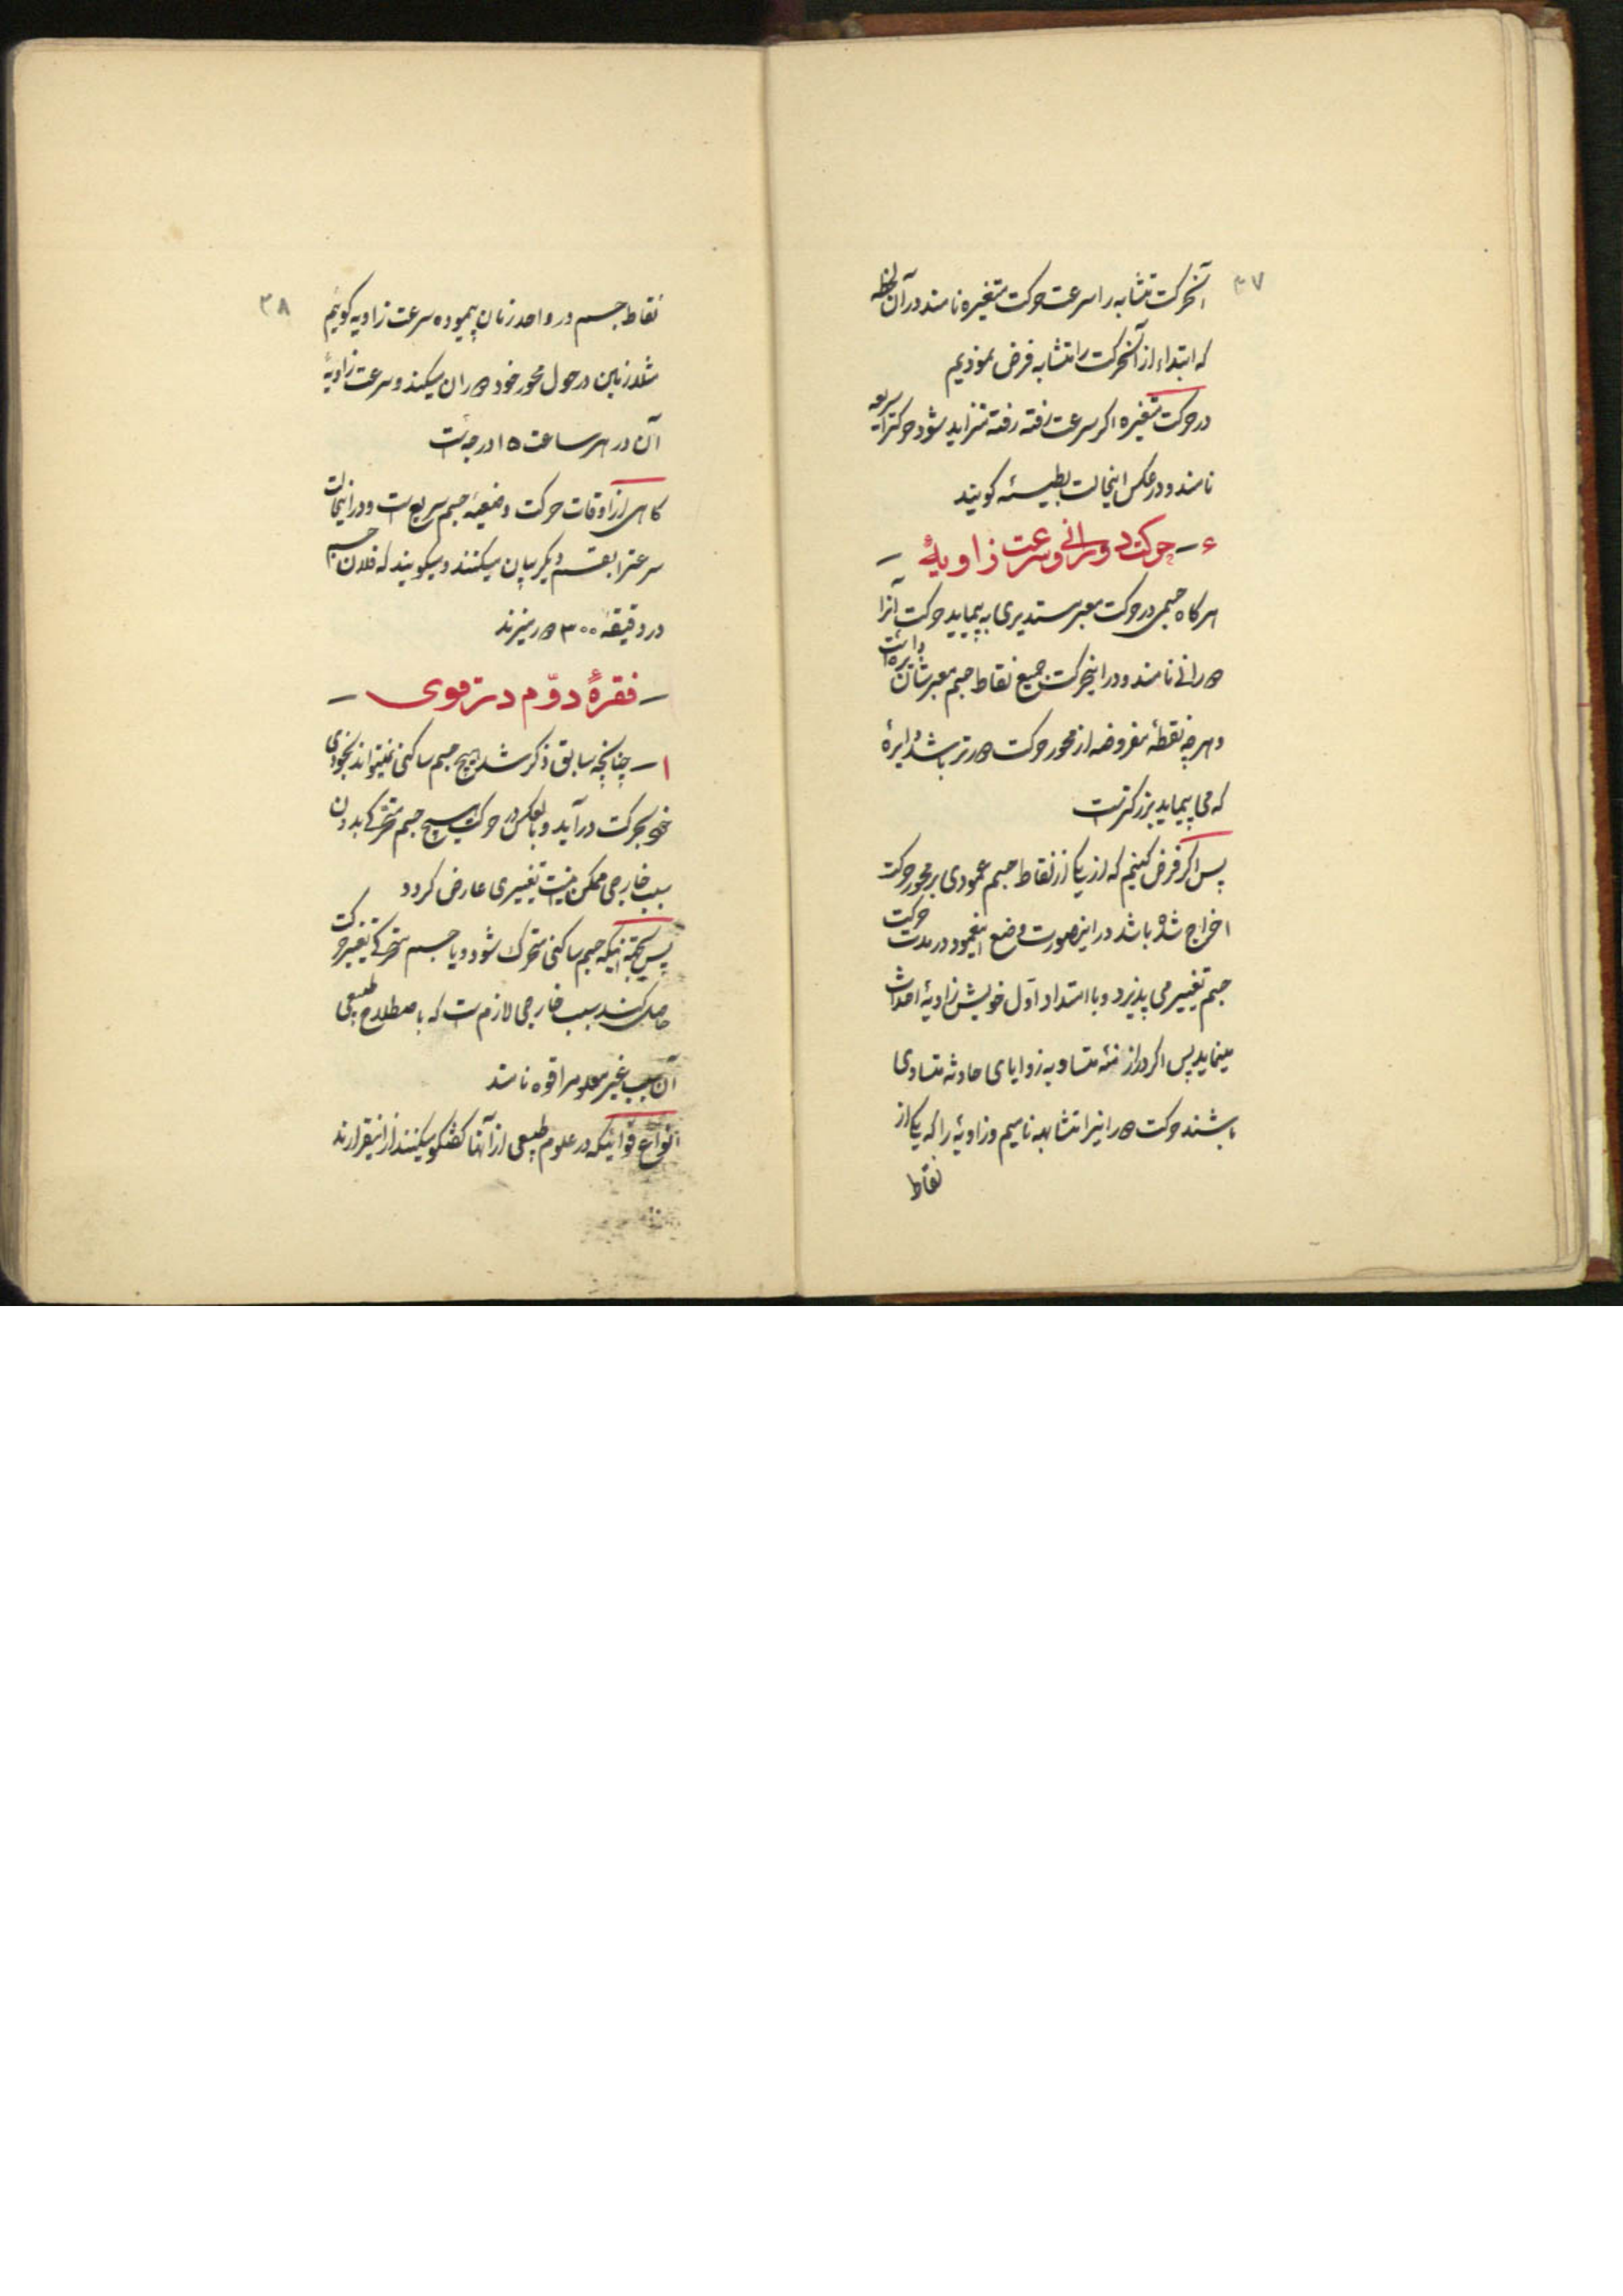 ۳۷
آنحرکت متشابه را سرعت حرکت متغیره نامند در آن لحظه
که ابتداء از آنحرکت را متشابه فرض نمودیم
در حرکت متغیره اکر سرعت رفته رفته متزاید شود حرکترا سریعه
نامند و در عکس اینحالت بطیئه کویند
۴ – حرکت دورانی و سرعت زاویهٔ –
هرکاه جسمی در حرکت معبر مستدیری به پیماید حرکت آنرا
دورانی نامند و در اینحرکت جمیع نقاط جسم معبرشان دایره است
و هرچه نقطهٔ مفروضه از محور حرکت دورتر باشد دایرهٔ
که می پیماید بزرکتر است
پس اکر فرض کنیم که از یکی از نقاط جسم عمودی بر محور حرکت
اخراج شده باشد در اینصورت وضع اینعمود در مدت حرکت
جسم تغییر می پذیرد و با امتداد اول خویش زاویهٔ احداث
مینماید پس اکر در ازمنهٔ متساویه زوایای حادثه متساوی
باشند حرکت دورانیرا متشابهه نامیم و زاویهٔ را که یکی از
نقاط
۳۸
نقاط جسم در واحد زمان پیموده سرعت زاویه کوئیم
مثلا زمین در حول محور خود دوران میکند و سرعت زاویهٔ
آن در هر ساعت ۱۵ درجه است
کاهی از اوقات حرکت وضعیهٔ جسم سریع است و در اینحالت
سرعترا بقسم دیکر بیان میکنند و میکویند که فلان جسم
در دقیقهٔ ۳۰۰ دور میزند
– فقرهٔ دوّم در قوی –
۱ – چنانچه سابق ذکر شد هیچ جسم ساکنی نمیتواند بخودی
خود بحرکت درآید و بالعکس در حرکت هیچ جسم متحرکی بدون
سبب خارجی ممکن نیست تغییری عارض کردد
پس بجهة اینکه جسم ساکنی متحرک شود و یا جسم متحرکی تغییر حرکت
حاصل کند سبب خارجی لازم است که باصطلاح طبیعی
آن سبب غیر معلوم را قوه نامند
انواع قوائیکه در علوم طبیعی از آنها کفتکو میکنند از اینقرارند